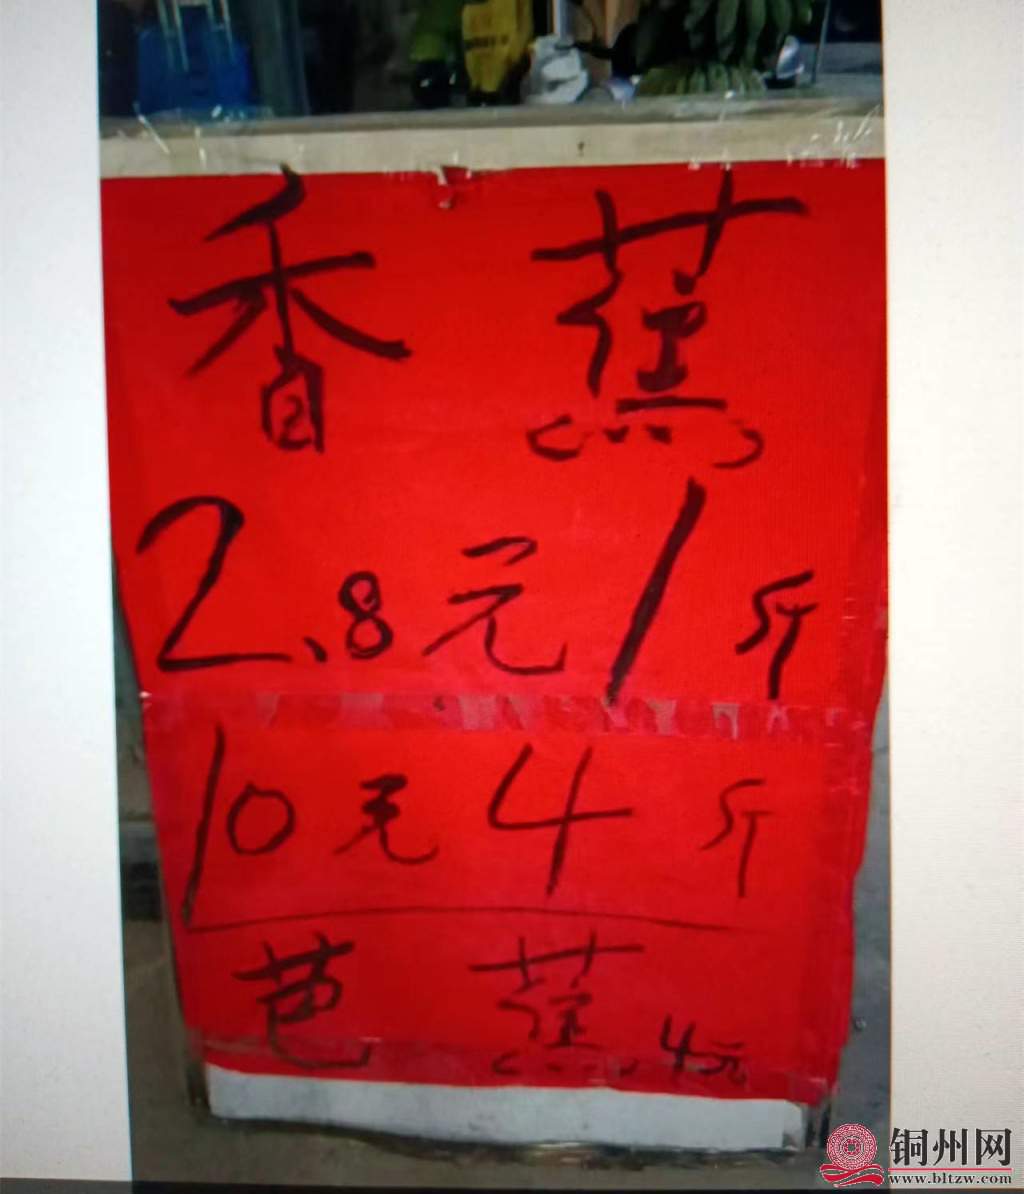 香蕉
2.8元1斤
10元4斤
芭蕉4元
铜州网
www.bltzw.com